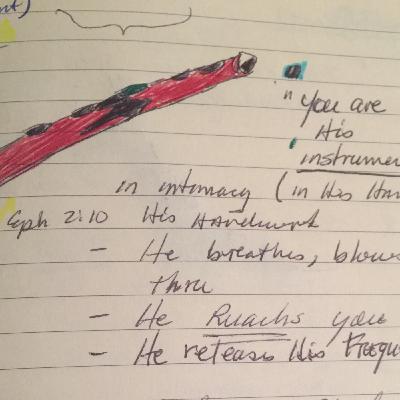 nt)
"You are
His
instrumen
in intimacy (in His Han
Eph 2:10 His Handiwork
- He breathes, blows
thru
- He Ruachs you
- He releases His Frequ